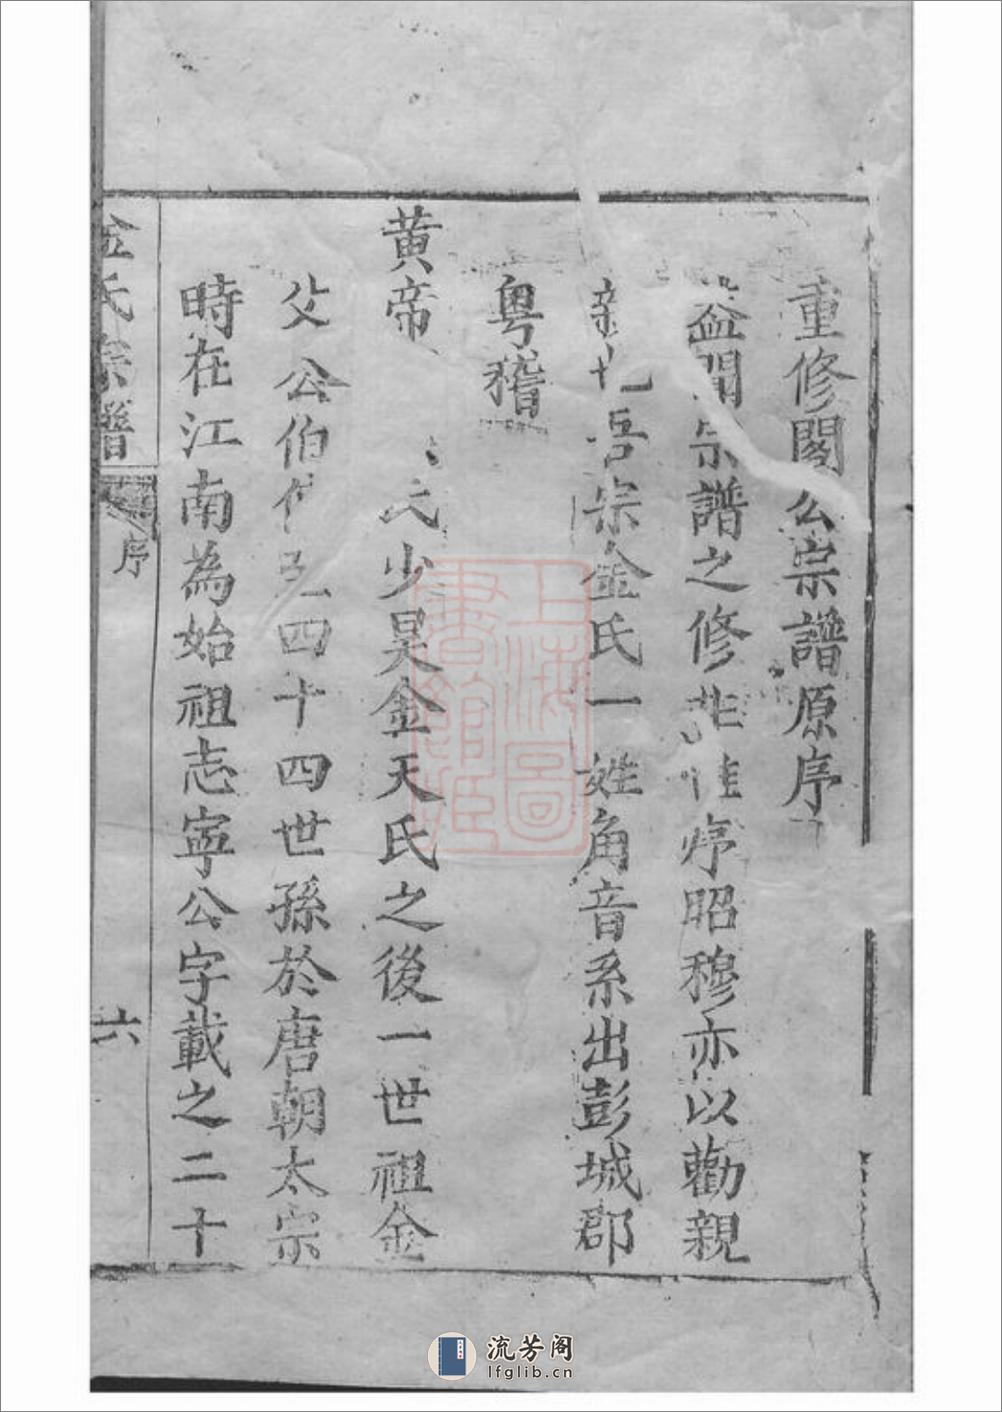 重修閣公宗譜原序
益聞宗譜之修非惟序昭穆亦以勸親
吾宗金氏一姓角音系出彭城郡
粤稽
黄帝 氏少昊金天氏之後一世祖金
父公伯 四十四世孫於唐朝太宗
時在江南為始祖志寧公字載之二十
金氏宗譜
序
六
上海圖書館藏
流芳阁
lfglib.cn